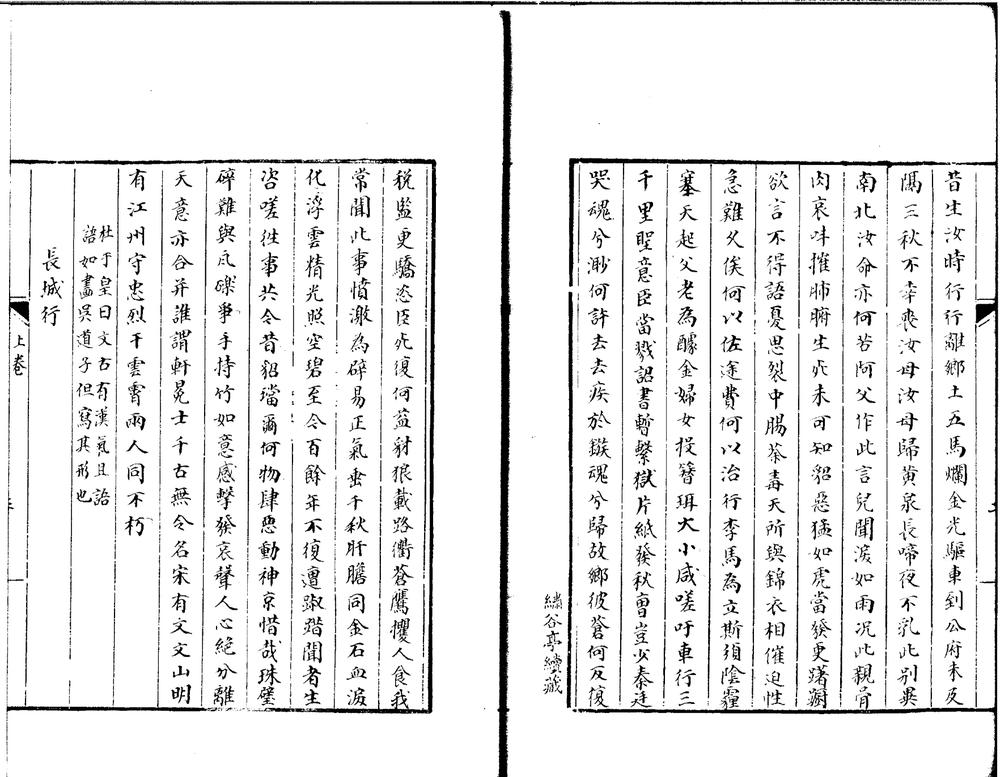 昔生汝時行行離鄉土五馬爛金光驅車到公府未及
隔三秋不幸喪汝母汝母歸黃泉長啼夜不乳此別吳
南北汝命亦何苦阿父作此言兒聞淚如雨况此親骨
肉哀咔摧肺腑生死未可知貂惡猛如虎當發更躊躕
欲言不得語憂思裂中腸荼毒天所與錦衣相催迫性
急難久俟何以佐途費何以治行李馬為立斯須陰霾
塞天起父老為醵金婦女投簪珥大小咸嗟吁車行三
千里聖意臣當戮詔書暫繫獄片紙發秋曹豈少秦廷
哭魂兮渺何許去去疾於鏃魂兮歸故鄉彼蒼何反復
繡谷亭續藏
稅監更驕恣臣死復何益豺狼載路衢蒼鷹攫人食我
常聞此事憤激為辟易正氣垂千秋肝膽同金石血淚
化浮雲精光照空碧至今百餘年不復遭蹴踏聞者生
咨嗟往事共今昔貂璫爾何物肆惡動神京惜哉珠璧
碎難與瓦礫爭手持竹如意感擊發哀聲人心絕分離
天意亦合并誰謂軒冕士千古無令名宋有文文山明
有江州守忠烈干雲霄兩人同不朽
杜于皇曰文古有漢氣且語
語如畫吳道子但寫其形也
長城行
上卷